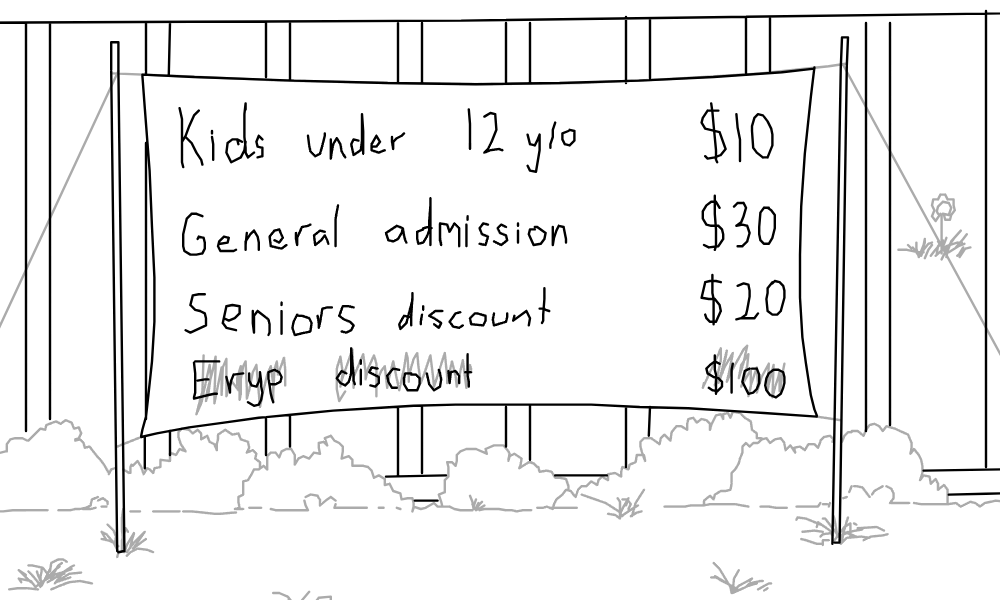 Kids under 12 y/o $10
General admission $30
Seniors discount $20
Eryp discount $100